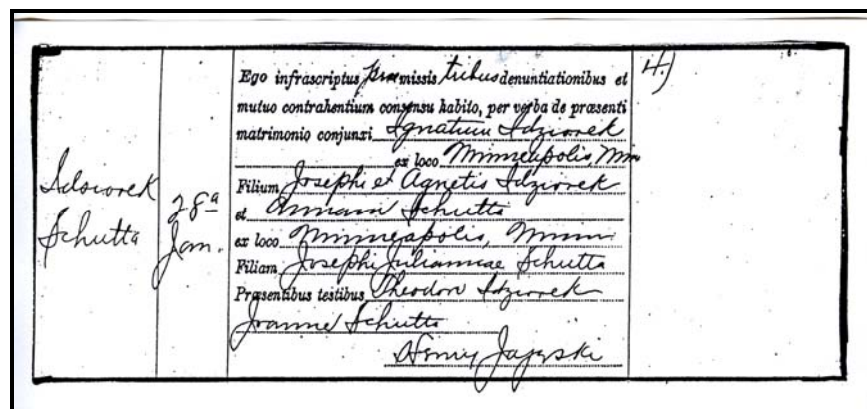 Idziorek
Schutta
28ª
Jan.
Ego infrascriptus præmissis tribus denuntiationibus et
mutuo contrahentium consensu habito, per verba de præsenti
matrimonio conjunxi Ignatium Idziorek
ex loco Minneapolis, Minn
Filium Josephi et Agnetis Idziorek
et Annam Schutta
ex loco Minneapolis, Minn.
Filiam Josephi Juliannae Schutta
Præsentibus testibus Theodor Idziorek
Joanne Schutta
Henry Jajeski
4.)